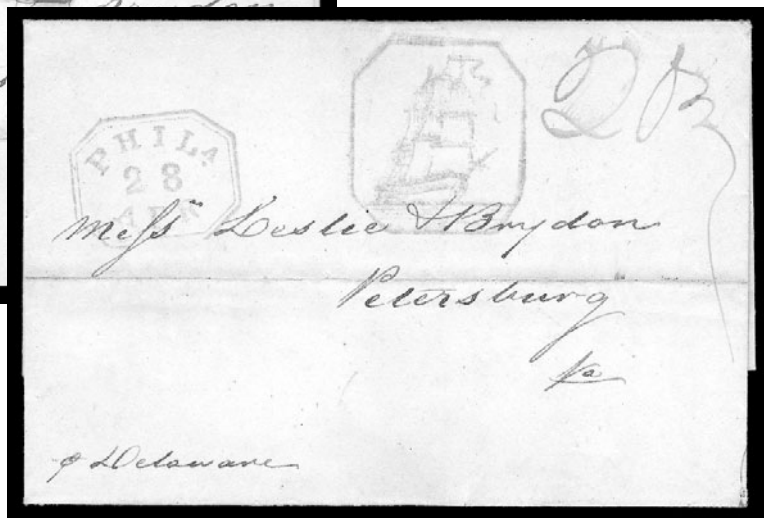 PHILA
28
APR
Messrs Leslie & Brydon
Petersburg
Va
p Delaware